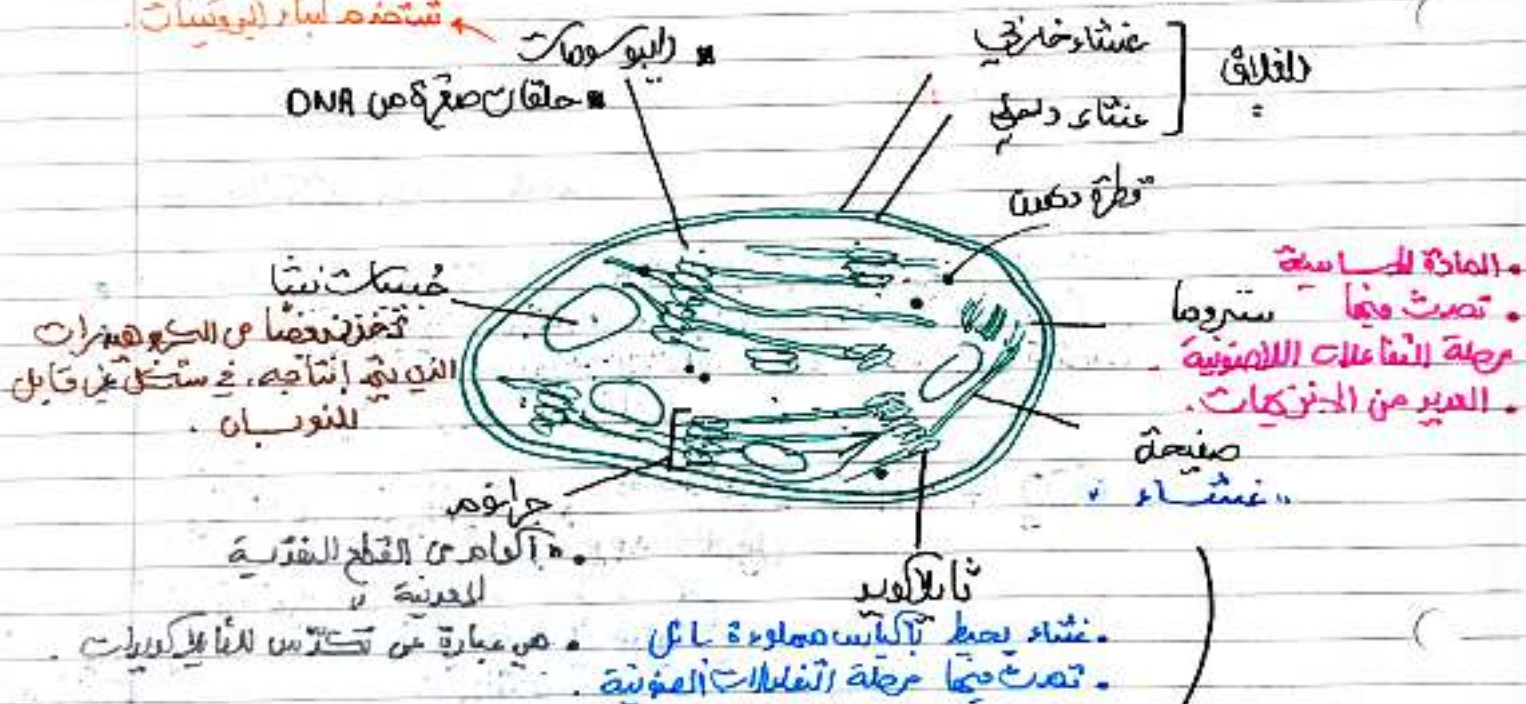 تستخدم لبناء البروتينات.
رايبوسومات
حلقات صغيرة من DNA
غشاء خارجي
غشاء داخلي
الغلاف
قطرة دهون
حبيبات نشا
تخزن بعضا من الكربوهيدرات
الذي يتم إنتاجه، في شكل غير قابل
للذوبان.
ستروما
. المادة الأساسية
. تحدث فيها
مرحلة التفاعلات اللاضوئية.
. العديد من الإنزيمات.
صفيحة
"غشاء"
جرانوم
. "أكوام من القطع النقدية
المعدنية"
. هي عبارة عن تكدّس للثايلاكويدات.
ثايلاكويد
. غشاء يحيط بأكياس مملوءة بسائل
. تحدث فيها مرحلة التفاعلات الضوئية.